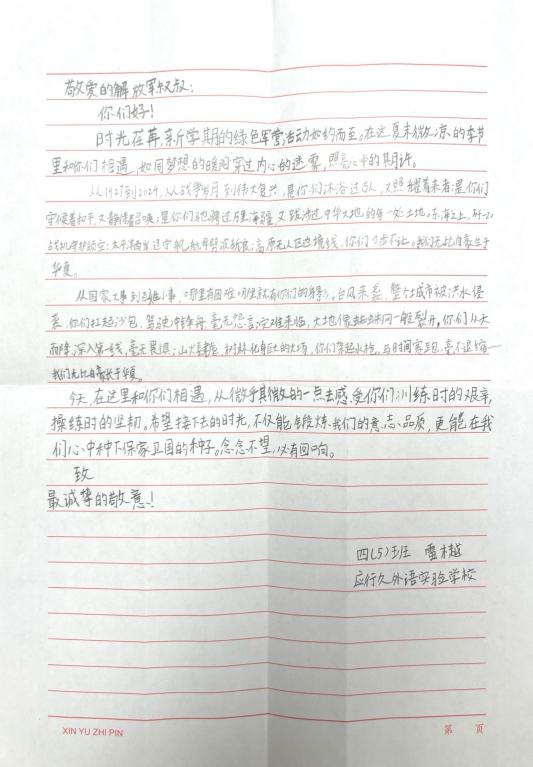 敬爱的解放军叔叔:
你们好!
时光荏苒,新学期的绿色军营活动如约而至。在这夏末微凉的季节
里和你们相遇,如同梦想的暖阳穿过内心的迷雾,照亮心中的期许。
从1927到2024,从战争岁月到伟大复兴,是你们沐浴过战火,又照耀着未来者;是你们
守候着和平,又静待着召唤;是你们驰骋过万里海疆,又跋涉过中华大地的每一处土地。东海之上,歼-20
战机守护领空;太平洋西岸辽宁舰航母劈波斩浪;高原无人区边境线,你们寸步不让。我们无比自豪生于
华夏。
从国家大事到急难小事,哪里有困难哪里就有你们的身影。台风来袭,整个城市被洪水侵
袭,你们扛起沙包,驾驶冲锋舟,毫无怨言;灾难来临,大地像蜘蛛网一般裂开,你们从天
而降,深入第一线,毫无畏惧;山火肆虐,树林化身巨大的火场,你们举起水枪,与时间赛跑,毫不退缩……
我们无比自豪长于华夏。
今天,在这里和你们相遇,从微乎其微的一点去感受你们训练时的艰辛,
操练时的坚韧,希望接下去的时光,不仅能锻炼我们的意志、品质,更能在我
们心中种下保家卫国的种子。念念不望,必有回响。
致
最诚挚的敬意!
四(5)班 雷木越
应行久外语实验学校
XIN YU ZHI PIN
第 页